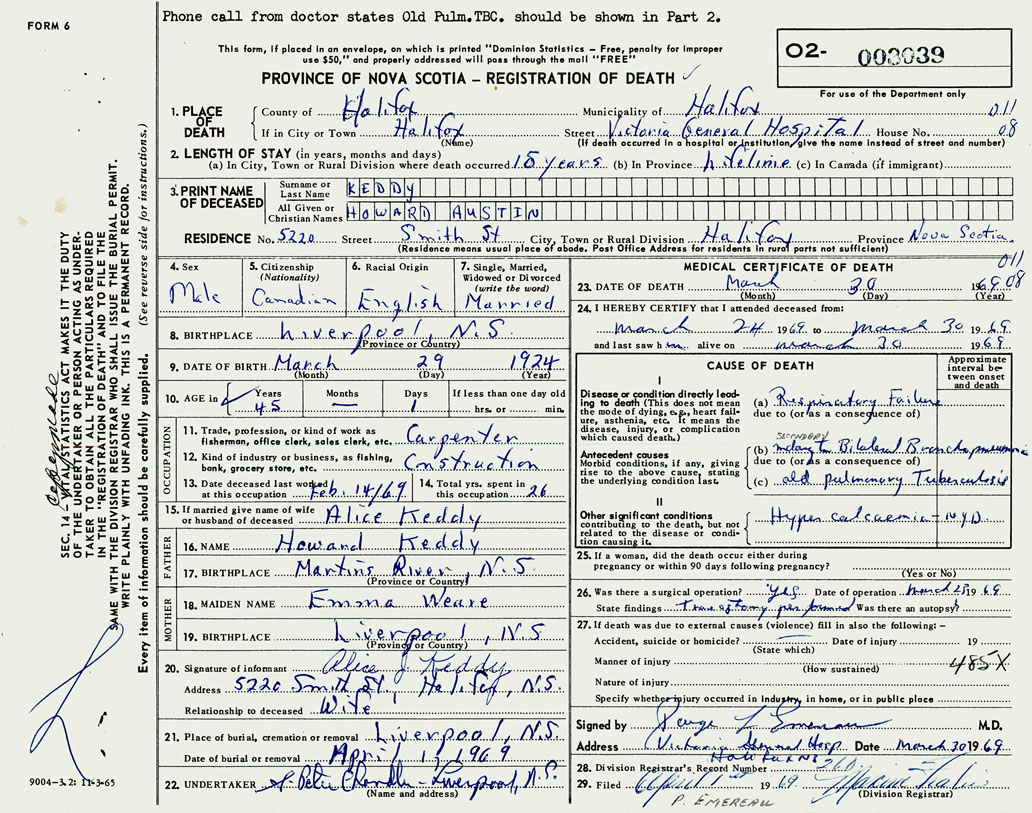 FORM 6
Phone call from doctor states Old Pulm.TBC. should be shown in Part 2.
This form, if placed in an envelope, on which is printed "Dominion Statistics – Free, penalty for improper
use $50," and properly addressed will pass through the mail "FREE"
PROVINCE OF NOVA SCOTIA – REGISTRATION OF DEATH
02- 003039
For use of the Department only
1. PLACE OF DEATH
County of Halifax Municipality of Halifax 011
If in City or Town Halifax Street Victoria General Hospital House No. 08
(Name) (If death occurred in a hospital or institution, give the name instead of street and number)
2. LENGTH OF STAY (in years, months and days)
(a) In City, Town or Rural Division where death occurred 15 years (b) In Province lifetime (c) In Canada (if immigrant)
3. PRINT NAME OF DECEASED
Surname or Last Name KEDDY
All Given or Christian Names HOWARD AUSTIN
RESIDENCE No. 5220 Street Smith St City, Town or Rural Division Halifax Province Nova Scotia
(Residence means usual place of abode. Post Office Address for residents in rural parts not sufficient)
4. Sex Male
5. Citizenship (Nationality) Canadian
6. Racial Origin English
7. Single, Married, Widowed or Divorced (write the word) Married
8. BIRTHPLACE Liverpool, N.S.
(Province or Country)
9. DATE OF BIRTH March 29 1924
(Month) (Day) (Year)
10. AGE in Years 45 Months — Days 1 If less than one day old hrs. or min.
OCCUPATION
11. Trade, profession, or kind of work as fisherman, office clerk, sales clerk, etc. Carpenter
12. Kind of industry or business, as fishing, bank, grocery store, etc. Construction
13. Date deceased last worked at this occupation Feb. 14/69 14. Total yrs. spent in this occupation 26
15. If married give name of wife or husband of deceased Alice Keddy
FATHER
16. NAME Howard Keddy
17. BIRTHPLACE Martins River, N.S.
(Province or Country)
MOTHER
18. MAIDEN NAME Emma Weare
19. BIRTHPLACE Liverpool, N.S
(Province or Country)
20. Signature of informant Alice J Keddy
Address 5220 Smith St, Halifax, N.S.
Relationship to deceased Wife
21. Place of burial, cremation or removal Liverpool, N.S.
Date of burial or removal April 1, 1969
22. UNDERTAKER Chandler Liverpool, N.S.
(Name and address)
MEDICAL CERTIFICATE OF DEATH
011
23. DATE OF DEATH March 30 1969 08
(Month) (Day) (Year)
24. I HEREBY CERTIFY that I attended deceased from:
March 24 1969 to March 30 1969
and last saw him alive on March 30 1969
CAUSE OF DEATH
Approximate interval between onset and death
I
Disease or condition directly leading to death (This does not mean the mode of dying, e.g., heart failure, asthenia, etc. it means the disease, injury, or complication which caused death.)
(a) Respiratory Failure
due to (or as a consequence of)
Antecedent causes
Morbid conditions, if any, giving rise to the above cause, stating the underlying condition last.
SECONDARY
(b) Bilateral Bronchopneumonia
due to (or as a consequence of)
(c) old pulmonary Tuberculosis
II
Other significant conditions contributing to the death, but not related to the disease or condition causing it.
Hypercalcaemia – NYD.
25. If a woman, did the death occur either during pregnancy or within 90 days following pregnancy?
(Yes or No)
26. Was there a surgical operation? Yes Date of operation March 28 1969
State findings performed Was there an autopsy?
27. If death was due to external causes (violence) fill in also the following: –
Accident, suicide or homicide? Date of injury 19
(State which)
Manner of injury 485X
(How sustained)
Nature of injury
Specify whether injury occurred in Industry, in home, or in public place
Signed by Emereau M.D.
Address Victoria General Hosp Date March 30 1969
28. Division Registrar's Record Number
29. Filed April 1st 1969
(Division Registrar)
P. EMEREAU
SEC. 14 – VITAL STATISTICS ACT MAKES IT THE DUTY
OF THE UNDERTAKER OR PERSON ACTING AS UNDER-
TAKER TO OBTAIN ALL THE PARTICULARS REQUIRED
IN THE "REGISTRATION OF DEATH" AND TO FILE THE
SAME WITH THE DIVISION REGISTRAR WHO SHALL ISSUE THE BURIAL PERMIT.
WRITE PLAINLY WITH UNFADING INK. THIS IS A PERMANENT RECORD.
Every item of information should be carefully supplied. (See reverse side for instructions.)
9004–3.2: 11-3-65